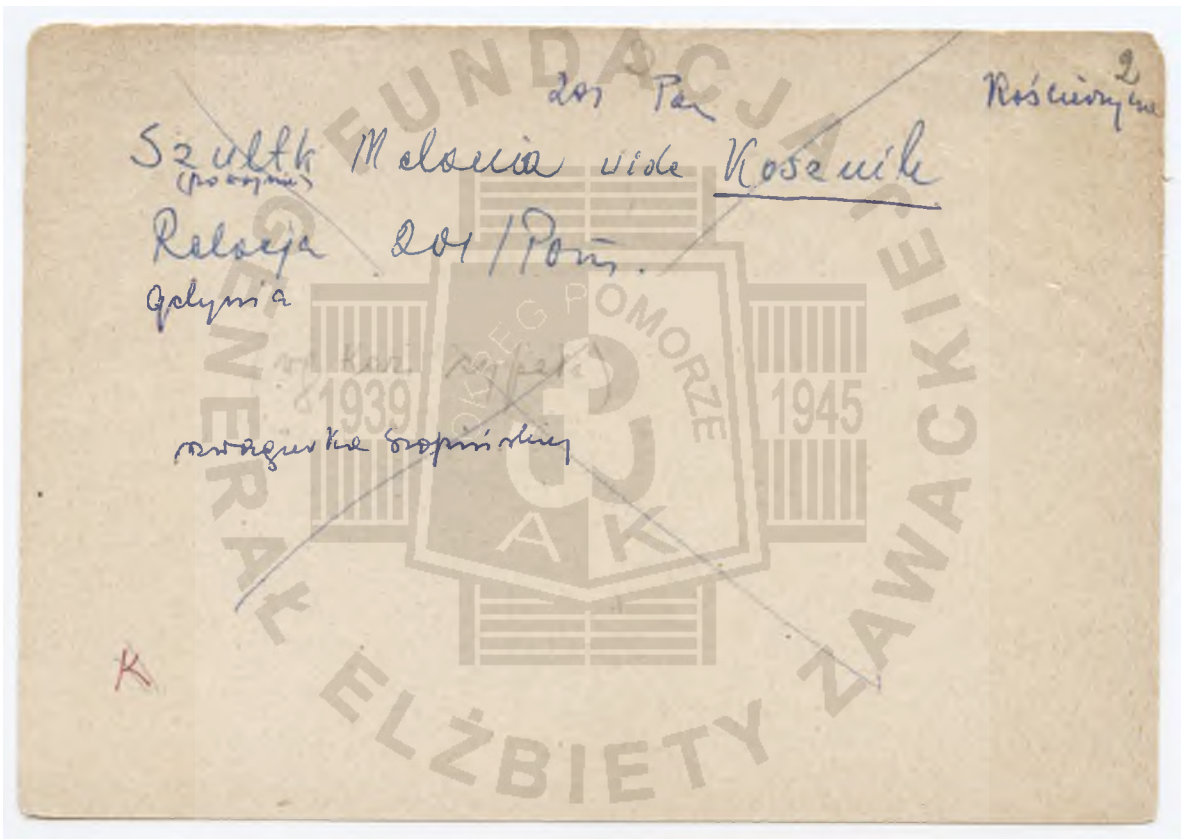 2
201 Pom Kościerzyna
Szultk Melania vide Kosznik
(po wojnie)
Relacja 201/Pom.
Gdynia
szwagierka Szopińskiej
K
FUNDACJA GENERAŁ ELŻBIETY ZAWACKIEJ
OKRĘG POMORZE
1939 1945
AK